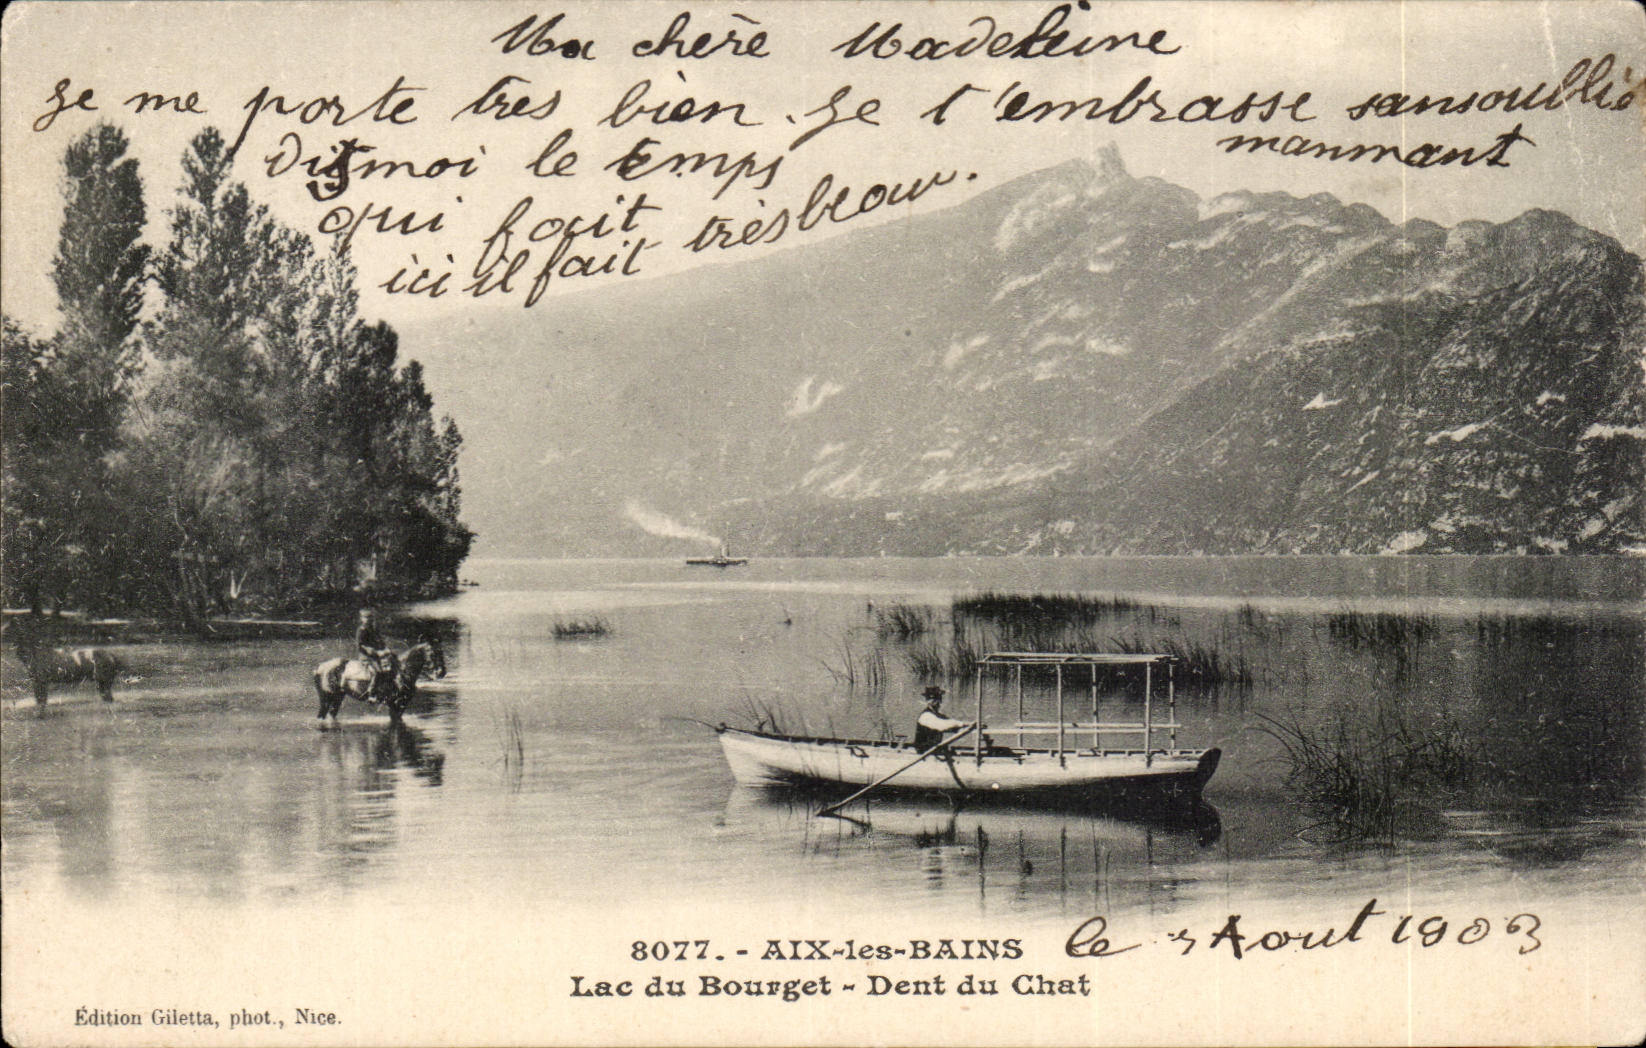 Ma chère Madeleine
Je me porte tres bien. Je t'embrasse sansoublié
manmant
Dis moi le temps
qui fait
ici il fait très beau.
8077. - AIX-les-BAINS
le Aout 1903
Lac du Bourget - Dent du Chat
Édition Giletta, phot., Nice.